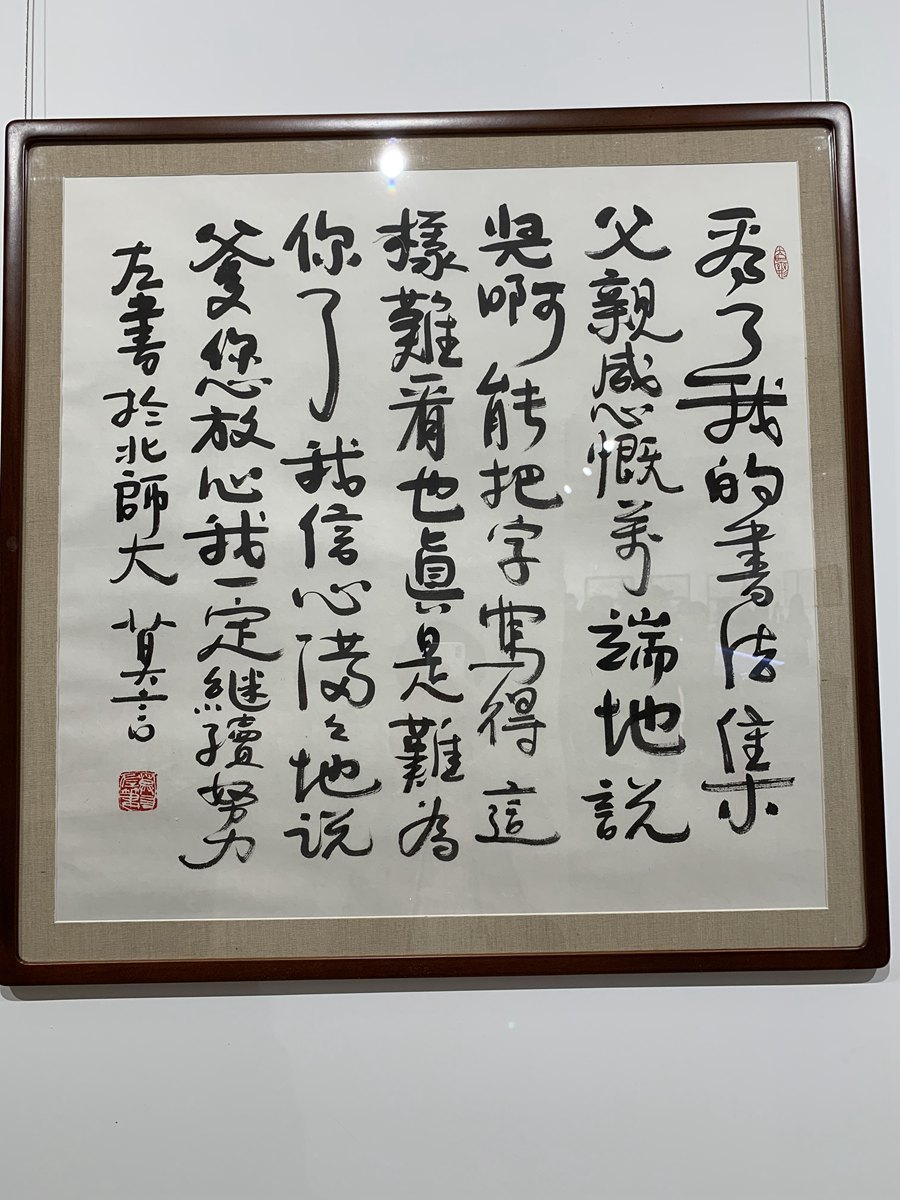 看了我的書法集
父親感慨萬端地説
兒啊能把字寫得這
樣難看也眞是難為
你了我信心滿々地说
爹您放心我一定継續努力
左書於北師大 莫言